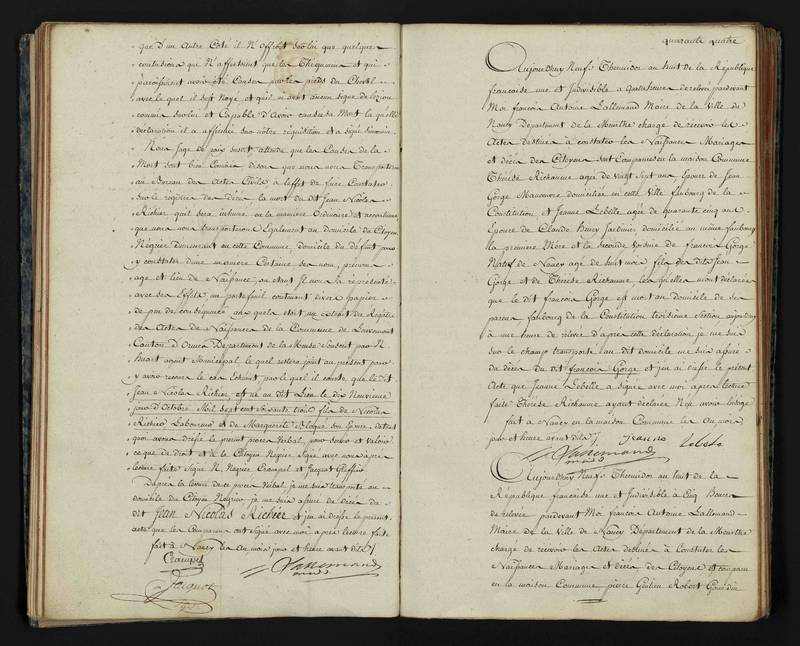 que d'un autre Coté il N'offroit sur lui que quelques
contusions qui N'affectoient que les Theguments et qui
paroissoient avoir été Causés par les pieds du Cheval
avec le quel il s'est Noyé et qu'il n'avoit aucun signe de lezions
connus sur lui et Capable d'Avoir causé sa Mort la qu'elle
déclaration il a affirmée sur notre réquisition et a signé
Nous Juge de paix susdit attendu que les Causes de la
Mort sont bien Connues disons que nous nous Transporterons
au Bureau des Actes Civils à l'effet de faire Constater
sur le registre des décès la mort du dit Jean Nicolas
Richier qu'il sera inhumé en la manière Ordinaire et accoutumée
que nous nous transporterons Egalement au domicile du Citoyen
Négrier demeurant en cette Commune, domicile du défunt pour
y constater d'une maniere Certaine ses nom, prénoms
age et lieu de Naissance, ou étant Il nous a représenté
avec ses Effets un portefeuil contenant divers papiers
de peu de consequence dans lequels étoit un Extrait du Régistre
des Actes de Naissances de la Commune de Louvemont
Canton d'Ornes Département de la Meuse soussigné par N.
Huart agent Municipal le quel restera joint au présent pour
y avoir recours le cas échéant, par le quel il conste que le dit
Jean Nicolas Richier est né au dit Lieu le dix Neuvieme
jour d'Octobre Mil sept cent soixante trois fils de Nicolas
Richier Laboureur et de Marguerite son Epouse, de tout
quoi avons dressé le present procès Verbal, pour servir et valoir
ce que de droit et de la Citoyen Negrier Signé avec nous après
lecture faite Signé N. Negrier Crampel et Jacquot Greffier
D'après la lecture de ce procès Verbal je me suis transporté au
domicile du Citoyen Negrier je me suis assuré du décès du
dit Jean Nicolas Richier et j'en ai dressé le présent
acte que les Comparans ont Signé avec moi, après lecture faite
fait à Nancy les an mois jour et heure avant dits
Crampel
Lallemand
maire
Jacquot
quarante quatre
Aujourd'huy Neuf Thermidor an huit de la République
francaise une et Indivisible à quatre heures de relevée pardevant
Moi françois Antoine Lallemand Maire de la Ville de
Nancy Département de la Meurthe chargé de recevoir les
Actes destinés à constater les Naissances Mariages
et décès des Citoyens sont Comparues en la maison Commune
Thérèse Richaume agée de vingt sept ans, Epouse de Jean
Gorge Manoeuvre domicilié en cette Ville faubourg de la
Constitution et Jeanne Lebelle agée de quarante cinq ans
Epouse de Claude Jardinier domiciliée au même faubourg
la premiere Mère et la seconde Voisine de françois Gorge
Natif de Nancy agé de huit mois fils des dits Jean
Gorge et de Thérèse Richaume les qu'elles m'ont déclarées
que le dit françois Gorge est mort au domicile de ses
parens faubourg de la Constitution troisieme Section aujourd'huy
à une heure de relevée d'après cette déclaration je me suis
sur le champ transporté au dit domicile me suis assuré
du décès du dit françois Gorge et j'en ai dressé le présent
Acte que Jeanne Lebelle a Signée avec moi après lecture
faite Thérèse Richaume ayant déclarée N'en avoir l'usage
fait à Nancy en la maison Commune les an mois
jour et heure avant dits Jeanne Lebele
Lallemand
maire
Aujourd'huy Neuf Thermidor an huit de la
République francaise une et Indivisible à Cinq heures
de relevée pardevant Moi françois Antoine Lallemand
Maire de la Ville de Nancy Département de la Meurthe
chargé de recevoir les Actes destinés à Constater les
Naissances Mariages et décès des Citoyens est comparu
en la maison Commune, pierre Robert Gourdin